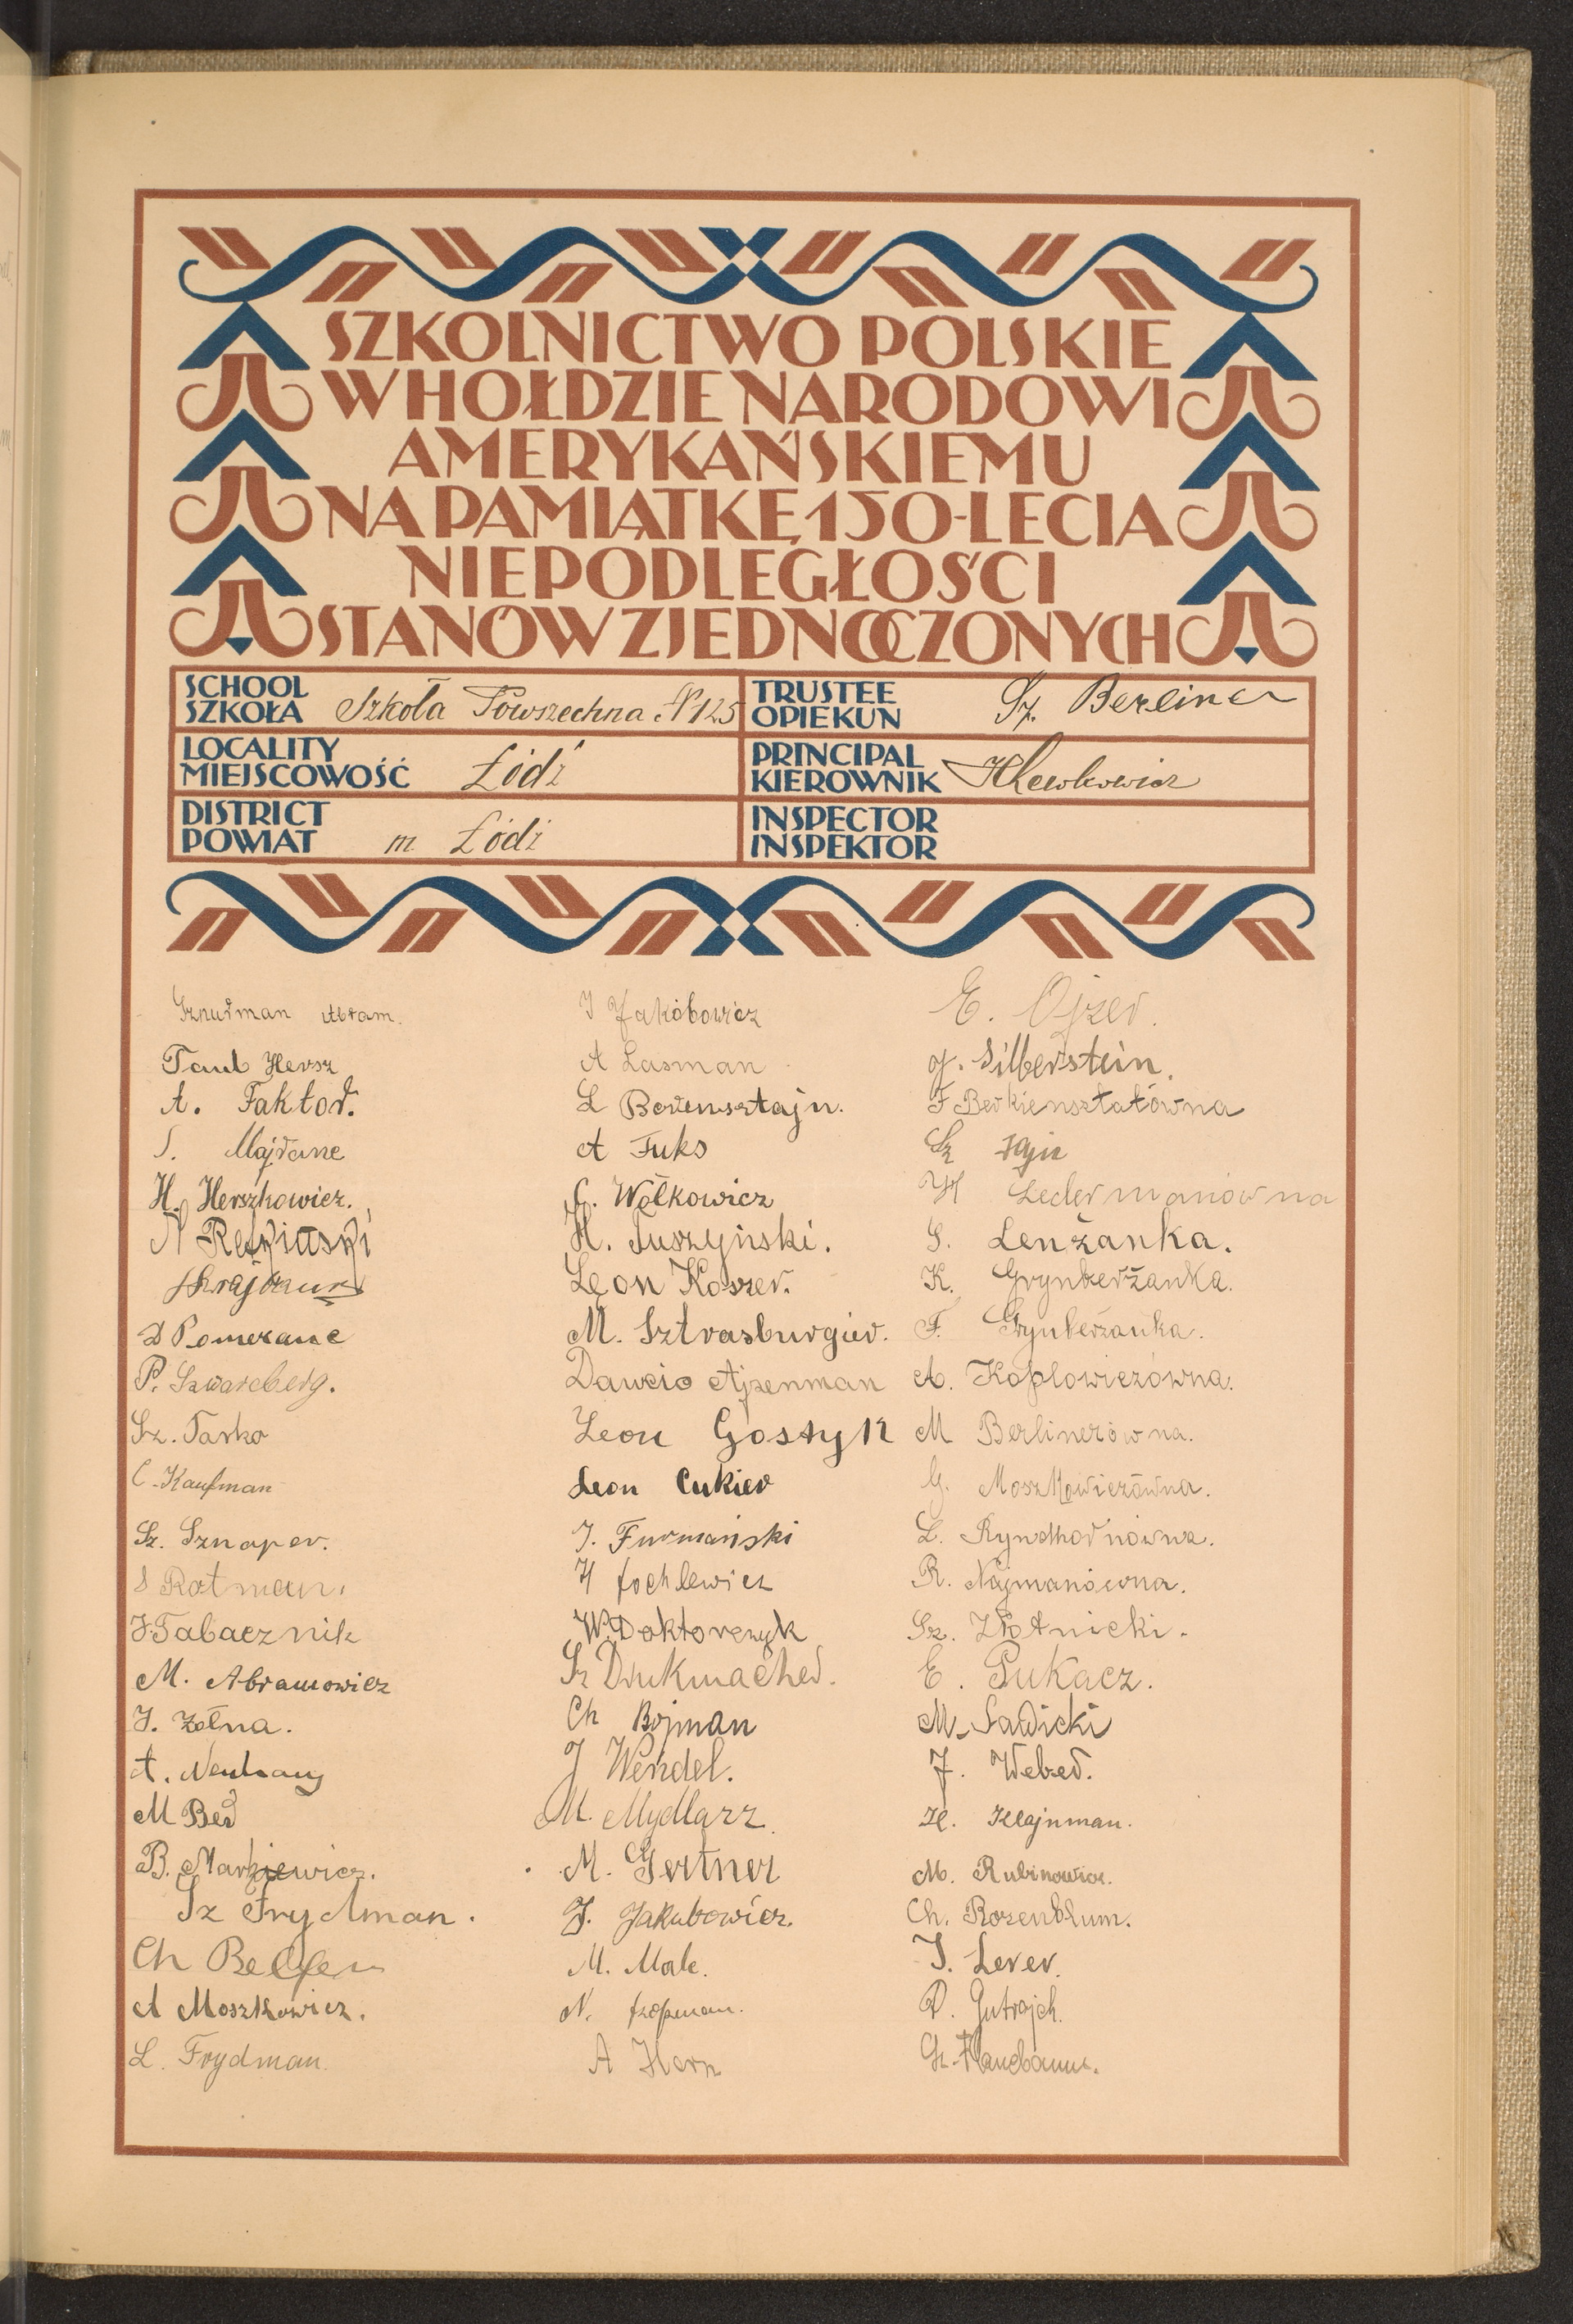 SZKOLNICTWO POLSKIE
W HOŁDZIE NARODOWI
AMERYKAŃSKIEMU
NA PAMIĄTKĘ 150-LECIA
NIEPODLEGŁOŚCI
STANÓW ZJEDNOCZONYCH
SCHOOL
SZKOŁA
Szkoła Powszechna N 125
TRUSTEE
OPIEKUN
Sz. Berliner
LOCALITY
MIEJSCOWOŚĆ
Łódź
PRINCIPAL
KIEROWNIK
DISTRICT
POWIAT
m Łódź
INSPECTOR
INSPEKTOR
Sznurman Abram.
Taub Hersz
A. Faktor.
S. Majranc
H. Herszkowicz.
N
D Pomeranc
P. Szwarcberg.
Sz. Tasko
C. Kaufman
Sz. Sznaper.
S Rotman.
J. Tabacznik
M. Abramowicz
J. Żołna.
A. Neuhaus
M Ber
B. Markiewicz.
Sz Frydman.
Ch Belfer
A Moszkowicz.
L. Frydman
J Jakóbowicz
A Lasman
L Borensztajn.
A Fuks
Wołkowicz
H. Tuszyński.
Leon Koszer.
M. Sztrasburgier.
Dawcio Ajzenman
Leon Gostyk
Leon Cukier
J. Furmański
H
W. Doktorczyk
Sz Drukmacher.
Ch Bojman
J Wendel.
M. Mydlarz.
M. Gertner
J. Jakubowicz.
M. Malc.
N.
A Horn
E. Ojzer.
J. Silberstein.
F Berkiensztatówna
Sz
H Ledermanówna
S. Lenżanka.
K. Grynberżanka.
F. Grynberżanka.
A. Koplowiczówna.
M Berlinerówna.
G. Moszkowiczówna.
L.
R. Najmanówna.
Sz. Złotnicki.
E. Pukacz.
M. Sawicki
J. Weber.
H. Klajnman.
M. Rubinowicz.
Ch. Rozenblum.
J. Lerer.
D. Gutrajch.